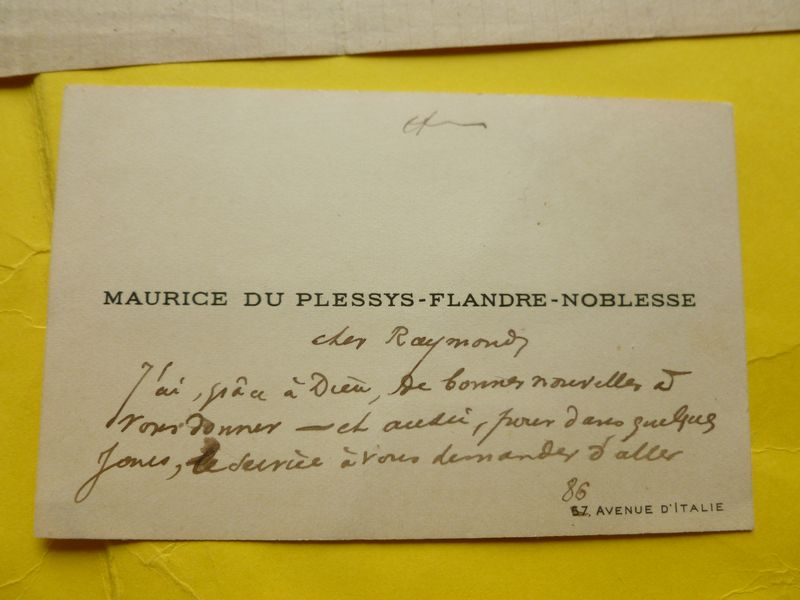 MAURICE DU PLESSYS-FLANDRE-NOBLESSE
cher Raymond,
J'ai, grâce à Dieu, de bonnes nouvelles à
vous donner — et aussi, pour dans quelques
jours, le service à vous demander d'aller
86
57, AVENUE D'ITALIE